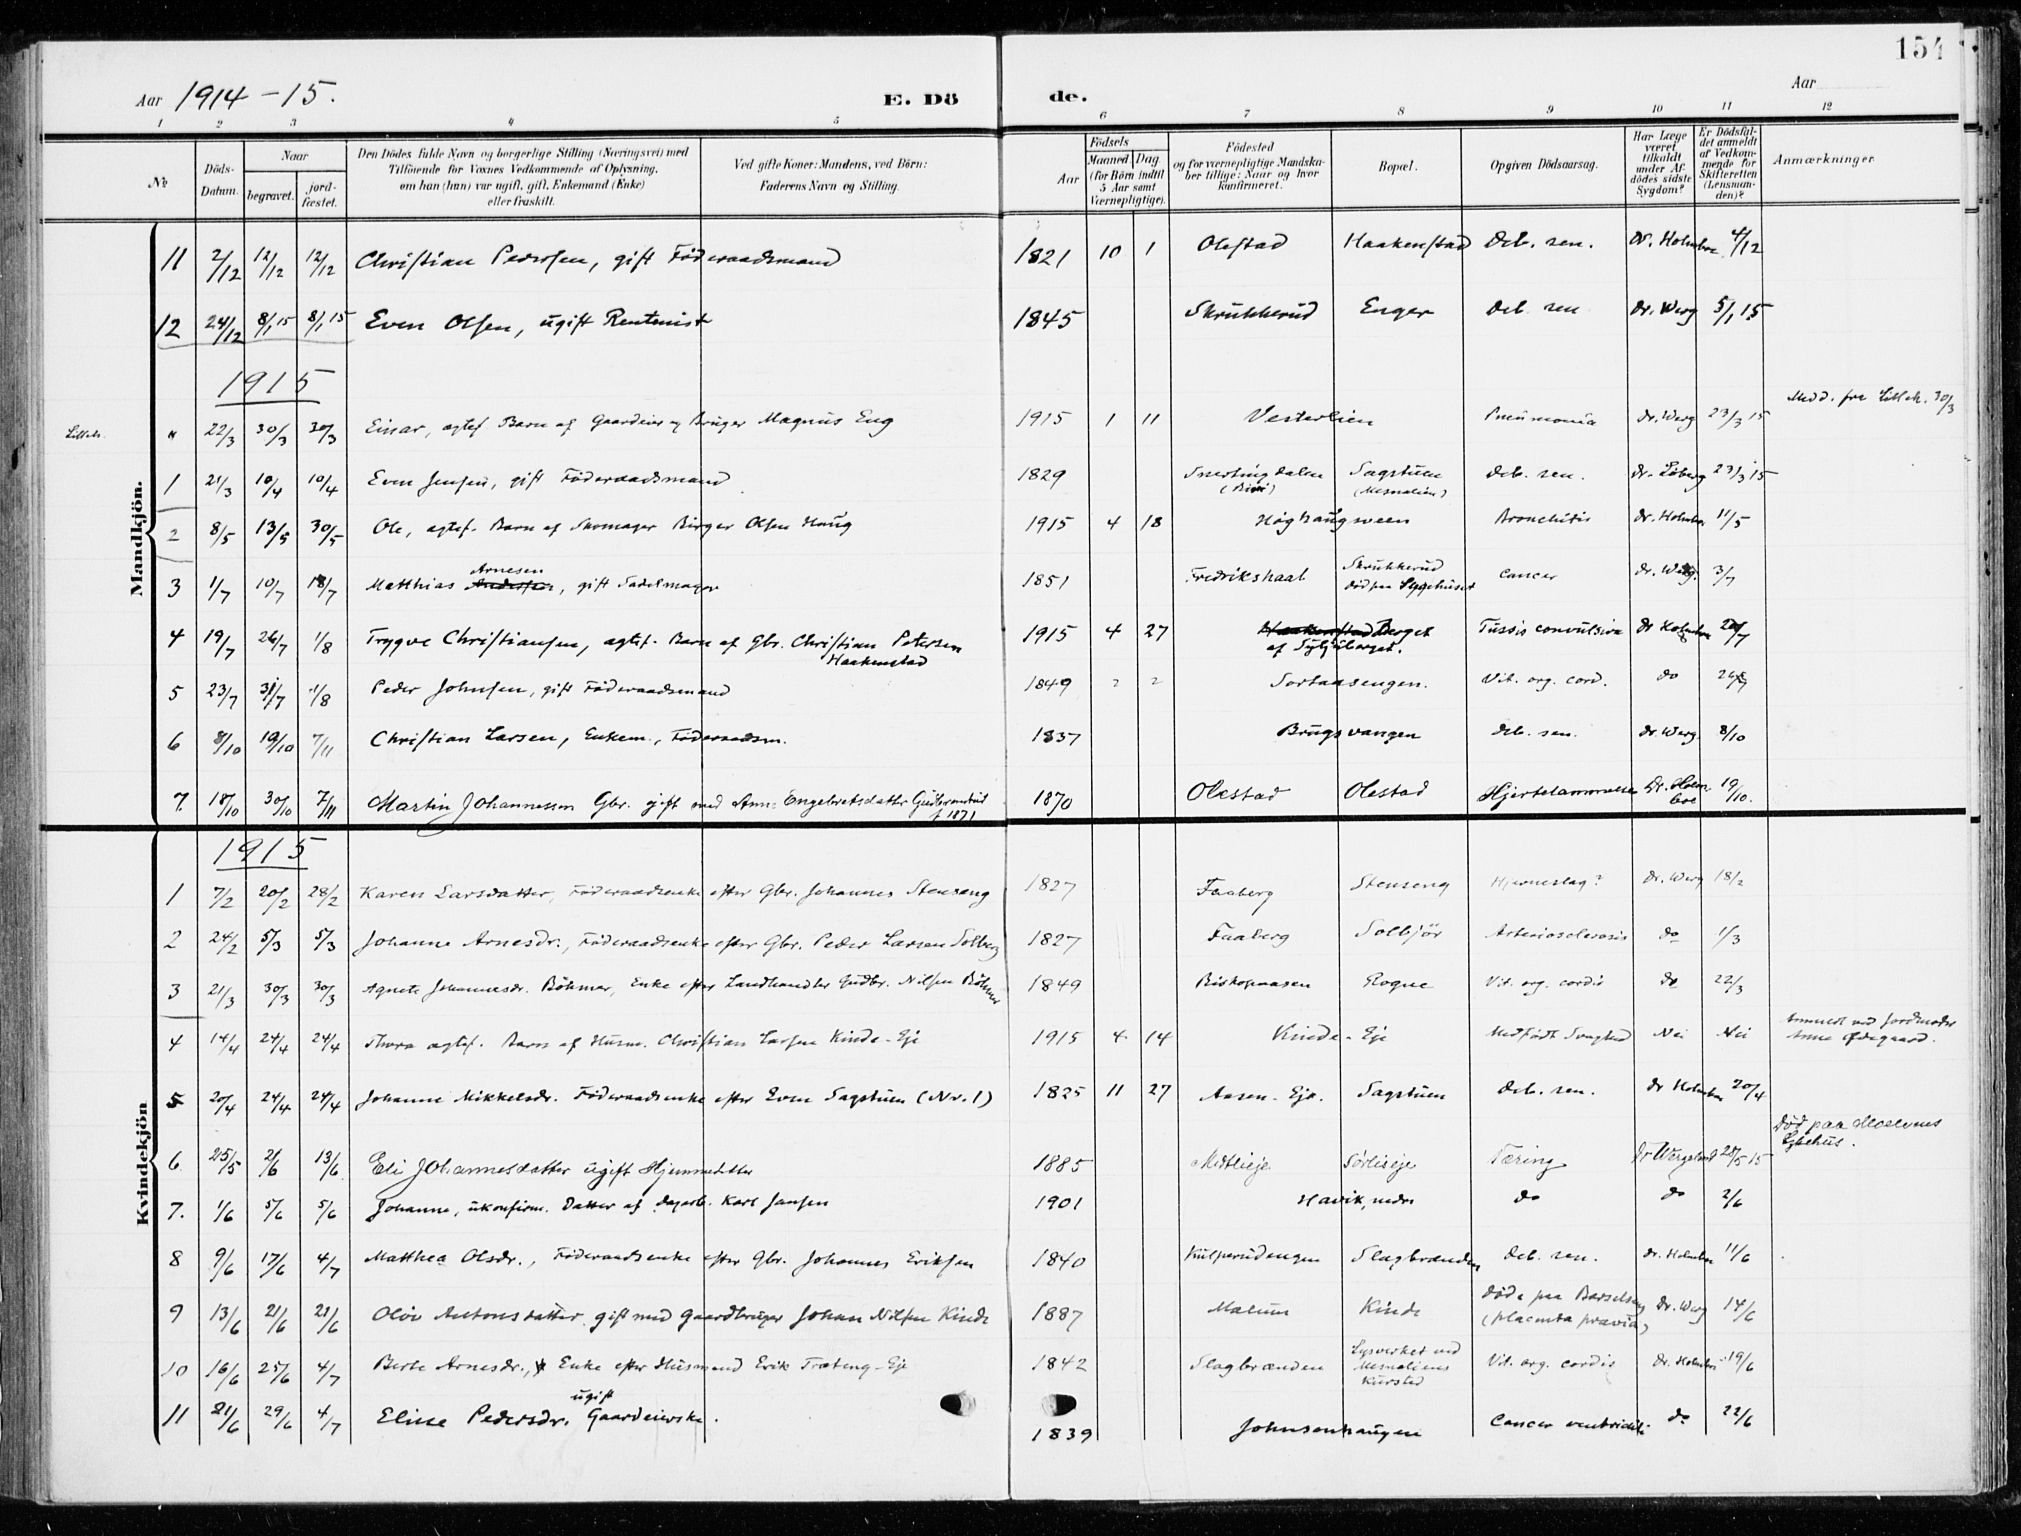 154
Aar 1914-15.
E. Dö de.
Aar
1 2 3 4 5 6 7 8 9 10 11 12
№
Döds-Datum.
Naar
begravet.
jord-fæstet.
Den Dödes fulde Navn og borgerlige Stilling (Næringsvei) med Tilföiende for Voxnes Vedkommende af Oplysning, om han (hun) var ugift, gift, Enkemand (Enke) eller fraskilt.
Ved gifte Koner: Mandens, ved Börn: Faderens Navn og Stilling.
Födsels
Aar
Maaned. Dag.
(for Börn indtil 5 Aar samt Værnepligtige).
Födested og for værnepligtige Mandskaber tillige: Naar og hvor konfirmeret.
Bopæl.
Opgiven Dödsaarsag.
Har Læge været tilkaldt under Afdödes sidste Sygdom?
Er Dödsfaldet anmeldt af Vedkommende for Skifteretten (Lensmanden)?
Anmærkninger
Mandkjön.
11 2/12 12/12 12/12 Christian Pedersen, gift Föderaadsmand 1821 10 1 Olestad Haakenstad Deb. sen. Dr. Holmboe 4/12
12 24/12 8/1 15 8/1 15 Even Olsen, ugift Rentenist 1845 Skrukkerud Enger Deb. sen Dr. Werg 5/1 15
1915
Lilleh. " 22/3 30/3 30/3 Einar, ægtef. Barn af Gaardeier og Bruger Magnus Eng 1915 1 11 Vesterlien Pneumonia Dr. Werg 23/3 15 Medd. fra Lilleh. 30/3
1 21/3 10/4 10/4 Even Jensen, gift Föderaadsmand 1829 Snertingdalen (Biri) Sagstuen (Mesnalien) Deb. sen. Dr. Löberg 23/3 15
2 8/5 13/5 30/5 Ole, ægtef. Barn af Skomager Birger Olsen Haug 1915 4 18 Höghaugsveen Bronchitis Dr. Holmboe 11/5
3 1/7 10/7 18/7 Matthias Arnesen, gift Sadelmager 1851 Fredrikshaal Skrukkerud död paa Sygehuset Cancer Dr. Werg. 3/7
4 19/7 26/7 1/8 Trygve Christiansen, ægtef. Barn af Gbr. Christian Petersen Haakenstad 1915 4 27 Haakenstad Berget af Syljuberget. Tussis convulsiva Dr Holmboe 20/7
5 23/7 31/7 1/8 Peder Johnsen, gift Föderaadsmand 1849 2 2 Sortaasengen. Vit. org. cord. do 24/7
6 8/10 19/10 7/11 Christian Larsen, Enkem., Föderaadsm. 1837 Brugsvangen Deb. sen. Dr. Werg. 8/10
7. 18/10 30/10 7/11 Martin Johannessen Gbr. gift med Anne Engebretsdatter f 1871 1870 Olestad Olestad Hjertelammelse Dr. Holmboe 19/10.
Kvindekjön
1915
1 7/2 20/2 28/2 Karen Larsdatter, Föderaadsenke efter Gbr. Johannes Stenseng 1827 Faaberg Stenseng Hjerneslag? Dr. Werg 18/2
2 24/2 5/3 5/3 Johanne Arnesdr., Föderaadsenke efter Gbr. Peder Larsen Solberg 1827 Faaberg Solbjör Arteriosclerosis do 1/3
3 21/3 30/3 30/3 Agnete Johannesdr. Böhmer, Enke efter Landhandler Gudbr. Nilsen Böhmer 1849 Biskopaasen Rogne Vit. org. cordis do 22/3
4 14/4 24/4 24/4 Thora ægtef. Barn af Husm. Christian Larsen Kinde-Eje 1915 4 14 Kinde-Eje Medfödt Svaghed Nei Nei Anmeldt ved Jordmoder Anne Ödegaard.
5 20/4 24/4 24/4 Johanne Mikkelsdr. Föderaadsenke efter Even Sagstuen (Nr. 1) 1825 11 27 Aasen-Eje. Sagstuen Deb. sen. Dr Holmboe 20/4
6 25/5 2/6 13/6 Eli Johannesdatter ugift Hjemmedatter 1885 Midtlieje Sörlieeje Tæring Dr Wergeland 28/5 15 Död paa Moelvens Sykehus.
7. 1/6 5/6 5/6 Johanne, ukonfirm. Datter af dagarb. Karl Jansen 1901 Havik, nedre do do 2/6
8 9/6 17/6 4/7 Matthea Olsdr., Föderaadsenke efter Gbr. Johannes Eriksen 1840 Kulperudengen Slagbrænden Deb. sen. Dr. Holmboe 11/6
9 13/6 21/6 21/6 Olöv Antonsdatter, gift med Gaardbruger Johan Nilsen Kinde 1887 Malum Kinde Döde paa Barselseng (placenta prævia) Dr. Werg 14/6
10 16/6 25/6 4/7 Berte Arnesdr., Enke efter Husmand Erik Træteng-Eje 1842 Slagbrænden Lysverket ved Mesnaliens Kursted Vit. org. cordis Dr. Holmboe 19/6
11 21/6 29/6 4/7 Elise Pedersdr. ugift Gaardeierske. 1839 Johnsenhaugen Cancer ventriculi do 22/6